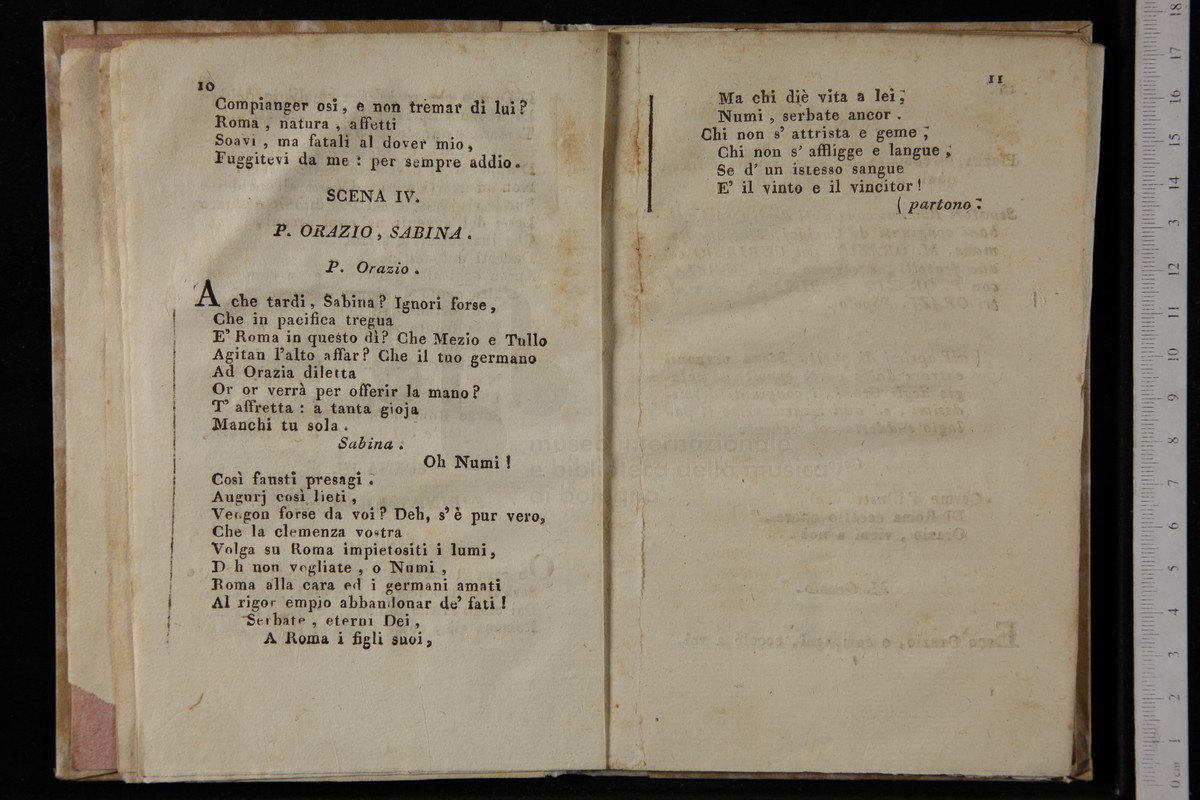 10
Compianger osi, e non tremar di lui?
Roma, natura, affetti
Soavi, ma fatali al dover mio,
Fuggitevi da me: per sempre addio.
SCENA IV.
P. ORAZIO, SABINA.
P. Orazio.
A che tardi, Sabina? Ignori forse,
Che in pacifica tregua
E' Roma in questo dì? Che Mezio e Tullo
Agitan l'alto affar? Che il tuo germano
Ad Orazia diletta
Or or verrà per offerir la mano?
T' affretta: a tanta gioja
Manchi tu sola.
Sabina.
Oh Numi!
Così fausti presagi.
Augurj così lieti,
Vengon forse da voi? Deh, s' è pur vero,
Che la clemenza vostra
Volga su Roma impietositi i lumi,
D h non vogliate, o Numi,
Roma alla cara ed i germani amati
Al rigor empio abbandonar de' fati!
Serbate, eterni Dei,
A Roma i figli suoi,
11
Ma chi diè vita a lei;
Numi, serbate ancor.
Chi non s' attrista e geme;
Chi non s' affligge e langue;
Se d' un istesso sangue
E' il vinto e il vincitor!
( partono.
museo internazionale
e biblioteca della musica
di bologna